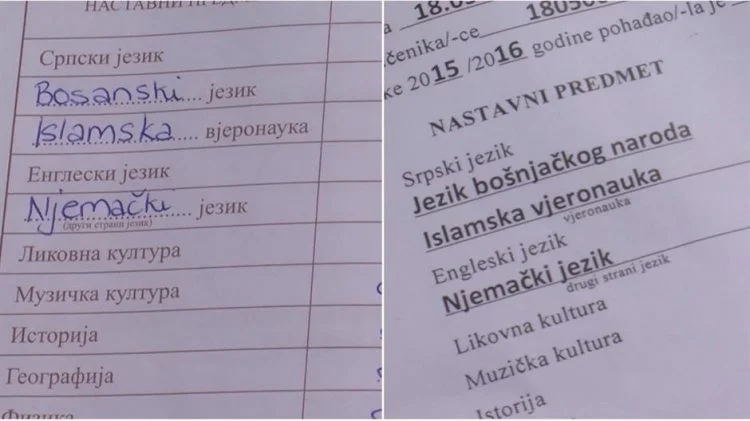 НАСТАВНИ
Српски језик
Bosanski језик
Islamska вјеронаука
Енглески језик
Njemački језик
(други страни језик)
Ликовна култура
Музичка култура
Историја
Географија
Физика
18.0
18050
čenika/-ce
ke 2015/2016 godine pohađao/-la je
NASTAVNI PREDMET
Srpski jezik
Jezik bošnjačkog naroda
Islamska vjeronauka
vjeronauka
Engleski jezik
Njemački jezik
drugi strani jezik
Likovna kultura
Muzička kultura
Istorija